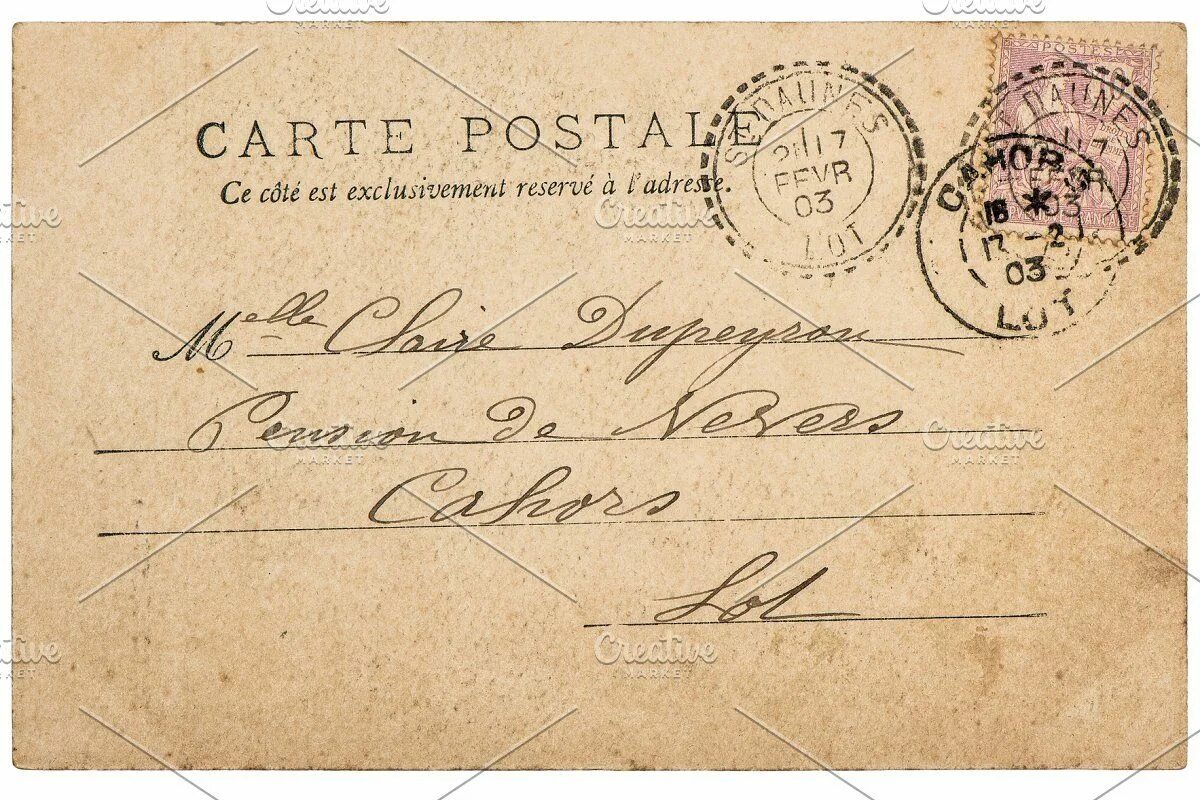 CARTE POSTALE
Ce côté est exclusivement reservé à l'adresse.
Sᵗ DAUNES
17
FEVR
03
LOT
POSTES
DAUNES
17
03
CAHORS
*
17 -2
03
LOT
Mᵉˡˡᵉ Claire Dupeyron
Pension de Nevers
Cahors
Lot
Creative
MARKET